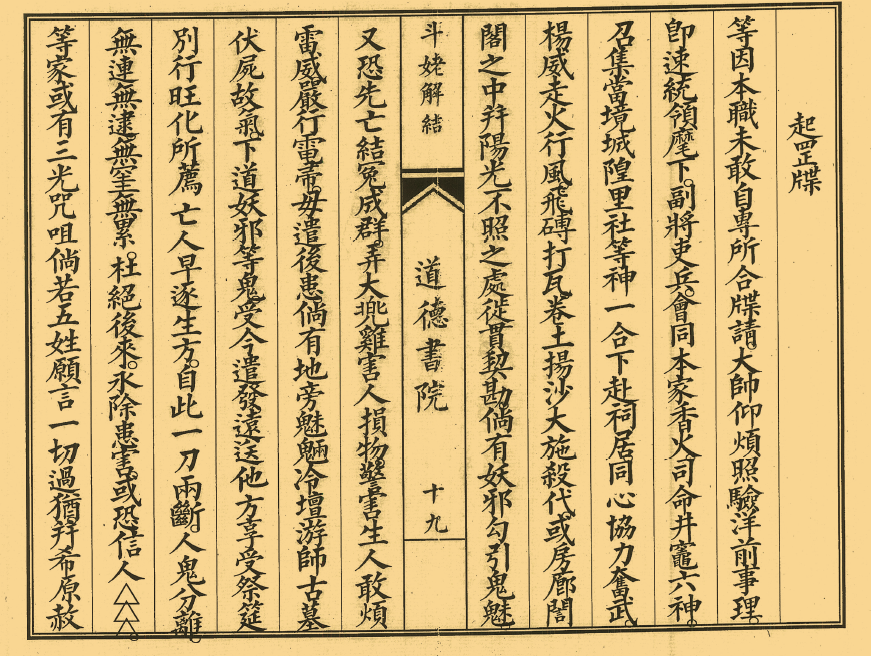 起罡牒
等因本職未敢自專所合牒請大帥仰煩照驗洋前事理
即速統領麾下副將吏兵會同本家香火司命井竈六神
召集當境城隍里社等神一合下赴祠居同心協力奮武
楊威走火行風飛磚打瓦卷土揚沙大施殺伐或房廊閣
閣之中并陽光不照之處徒貫契勘倘有妖邪勾引鬼魅
斗姥解結
道德書院
十九
又恐先亡結冤成群弄大兠雞害人損物警害生人敢煩
雷威嚴行電帚毋遣後患倘有地旁魅魎冷壇游師古墓
伏屍故氣下道妖邪等鬼受今遣發遠送他方享受祭筵
別行旺化所薦亡人早逐生方自此一刀兩斷人鬼分離
無連無逮無窒無累杜絕後來永除患害或恐信人
等家或有三光咒咀倘若五姓願言一切過猶并希原赦